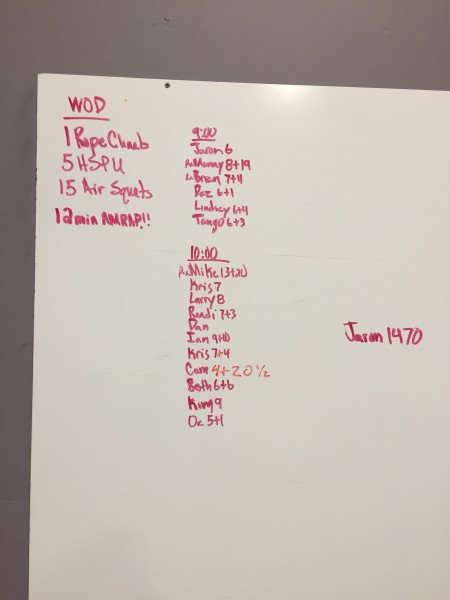 WOD
1 Rope Climb
5 HSPU
15 Air Squats
12 min AMRAP!!
9:00
Jaron 6
Rx Murray 8+19
Rx Brian 7+11
Doz 6+1
Lindsey 6+4
Tango 6+3
10:00
Rx Mike 13+20
Kris 7
Larry 8
Randi 7+3
Dan
Ian 9+10
Kris 7+4
Cam 4+20 1/2
Beth 6+6
King 9
Oz 5+1
Jaron 1470